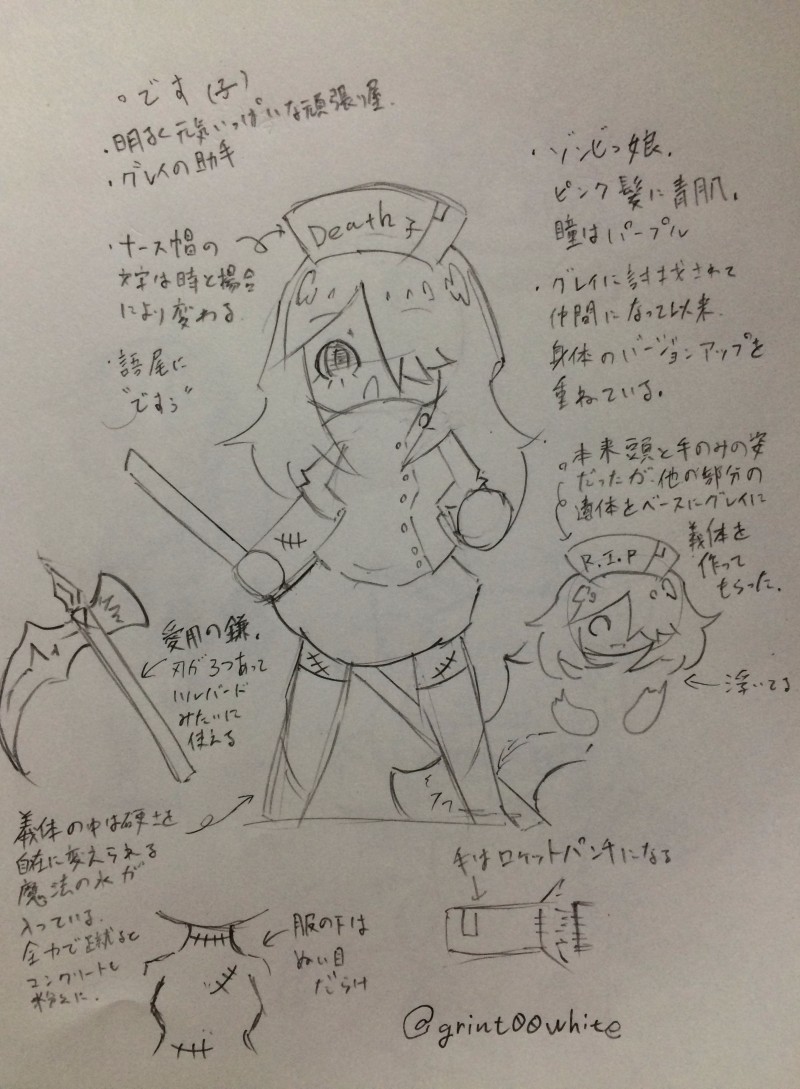 。です(子)
・明るく元気いっぱいな頑張り屋.
・グレイの助手
・ナース帽の
文字は時と場合
により変わる.
・語尾に
"ですぅ"
Death子
・ゾンビっ娘.
ピンク髪に青肌.
瞳はパープル
・グレイに討伐されて
仲間になって以来.
身体のバージョンアップを
重ねている.
本来頭と手のみの姿
だったが、他の部分の
遺体をベースにグレイに
義体を
作って
もらった.
R.I.P
浮いてる
愛用の鎌.
刃が3つあって
ハルバード
みたいに
使える
義体の中は硬さを
自在に変えられる
魔法の水が
入っている.
全力で蹴ると
コンクリートも
粉々に.
服の下は
ぬい目
だらけ
手はロケットパンチになる
@grint00white